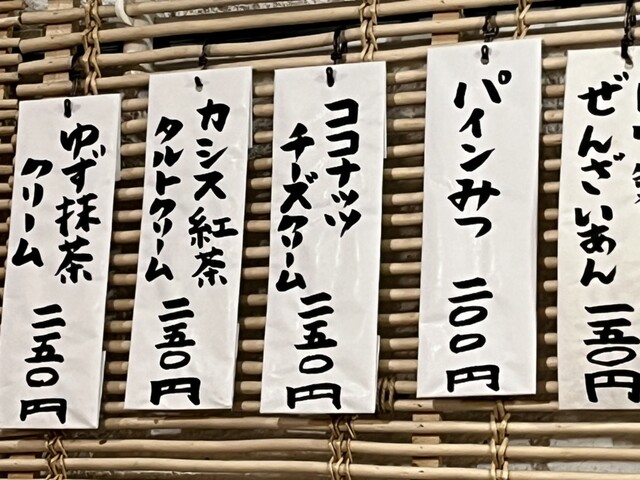 ぜんざいあん
一五〇円
パインみつ
二〇〇円
ココナッツ
チーズクリーム
二五〇円
カシス紅茶
タルトクリーム
二五〇円
ゆず抹茶
クリーム
二五〇円